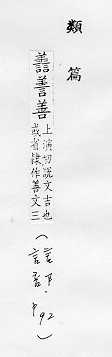 類篇
譱善上演切說文吉也
或省隸作善文三
P92